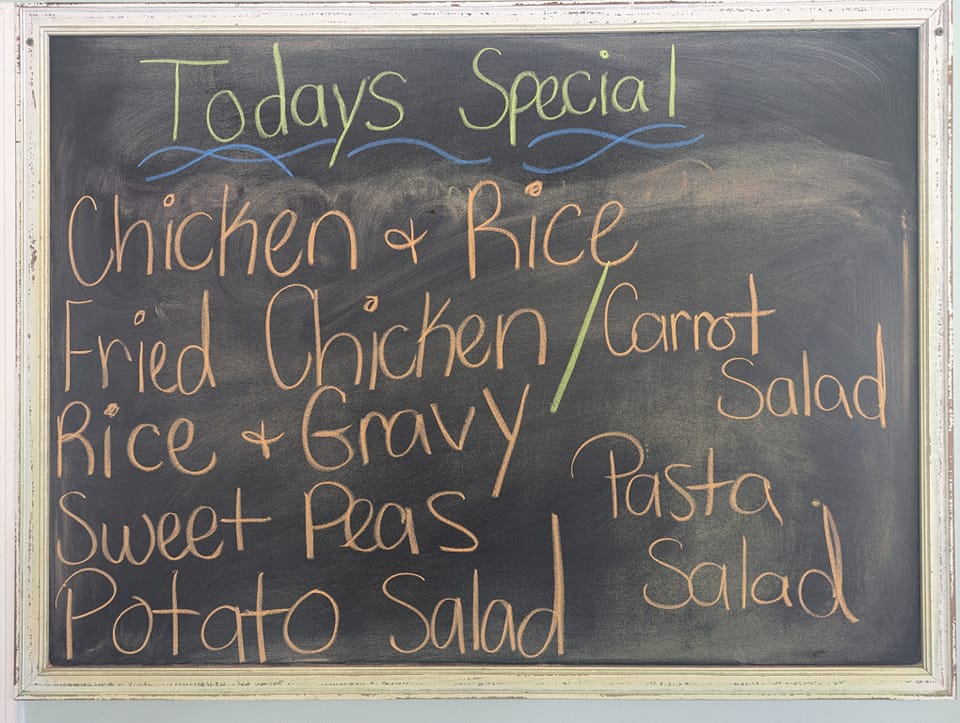 Todays Special
Chicken & Rice
Fried Chicken / Carrot
Salad
Rice & Gravy
Pasta
Sweet Peas
Salad
Potato Salad